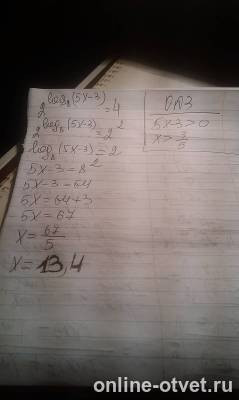 2^log₈(5x-3) = 4
2^log₈(5x-3) = 2²
log₈(5x-3) = 2
5x-3 = 8²
5x-3 = 64
5x = 64+3
5x = 67
x = 67/5
x = 13,4
ОДЗ
5x-3>0
x > 3/5
online-otvet.ru